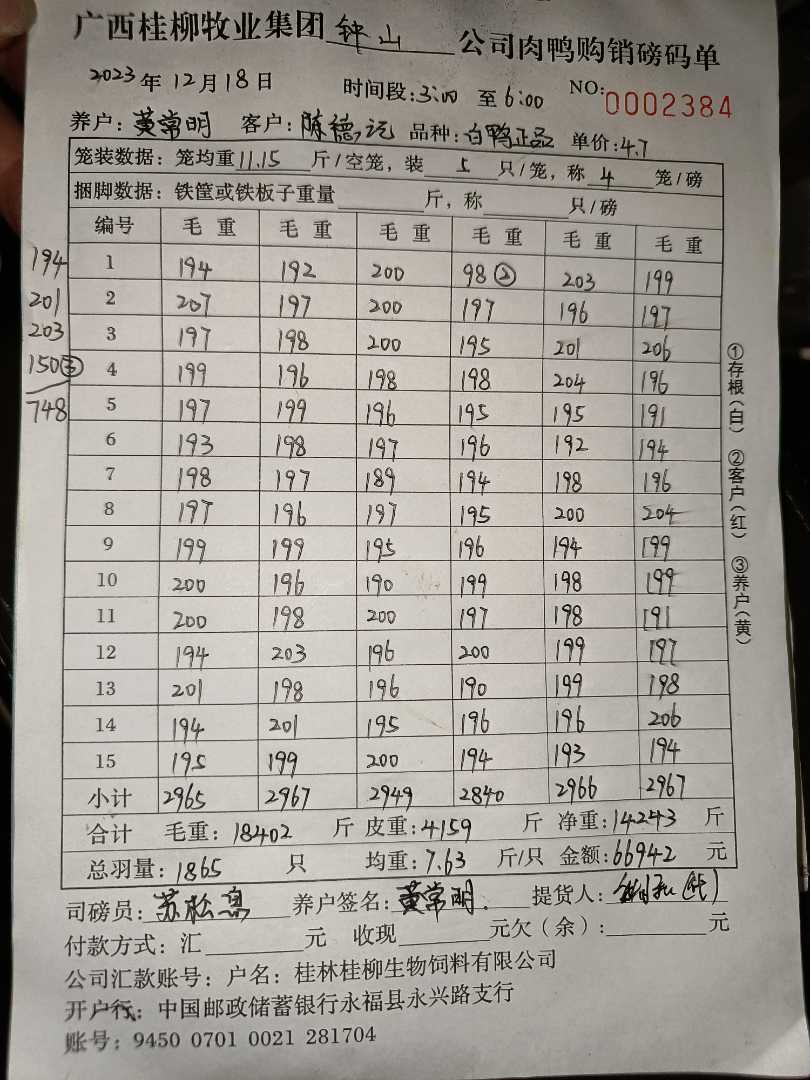 广西桂柳牧业集团 钟山 公司肉鸭购销磅码单
2023年12月18日 时间段:3:00 至6:00 NO:0002384
养户:黄常明 客户:陈德 品种:白鸭正品 单价:4.7
笼装数据:笼均重11.15斤/空笼,装5只/笼,称4笼/磅
捆脚数据:铁筐或铁板子重量 斤,称 只/磅
编号 毛重 毛重 毛重 毛重 毛重 毛重
194 1 194 192 200 98② 203 199
201 2 207 197 200 197 196 197
203 3 197 198 200 195 201 206
150③ 4 199 196 198 198 204 196
748 5 197 199 196 195 195 191
6 193 198 197 196 192 194
7 198 197 189 194 198 196
8 197 196 197 195 200 204
9 199 199 195 196 194 199
10 200 196 190 199 198 199
11 200 198 200 197 198 191
12 194 203 196 200 199 197
13 201 198 196 190 199 198
14 194 201 195 196 196 206
15 195 199 200 194 193 194
小计 2965 2967 2949 2840 2966 2967
合计 毛重:18402 斤 皮重:4159 斤 净重:14243 斤
总羽量:1865 只 均重:7.63 斤/只 金额:66942 元
司磅员:苏松 养户签名:黄常明 提货人:
付款方式:汇 元 收现 元欠(余): 元
公司汇款账号:户名:桂林桂柳生物饲料有限公司
开户行:中国邮政储蓄银行永福县永兴路支行
账号:9450 0701 0021 281704
①存根(白) ②客户(红) ③养户(黄)